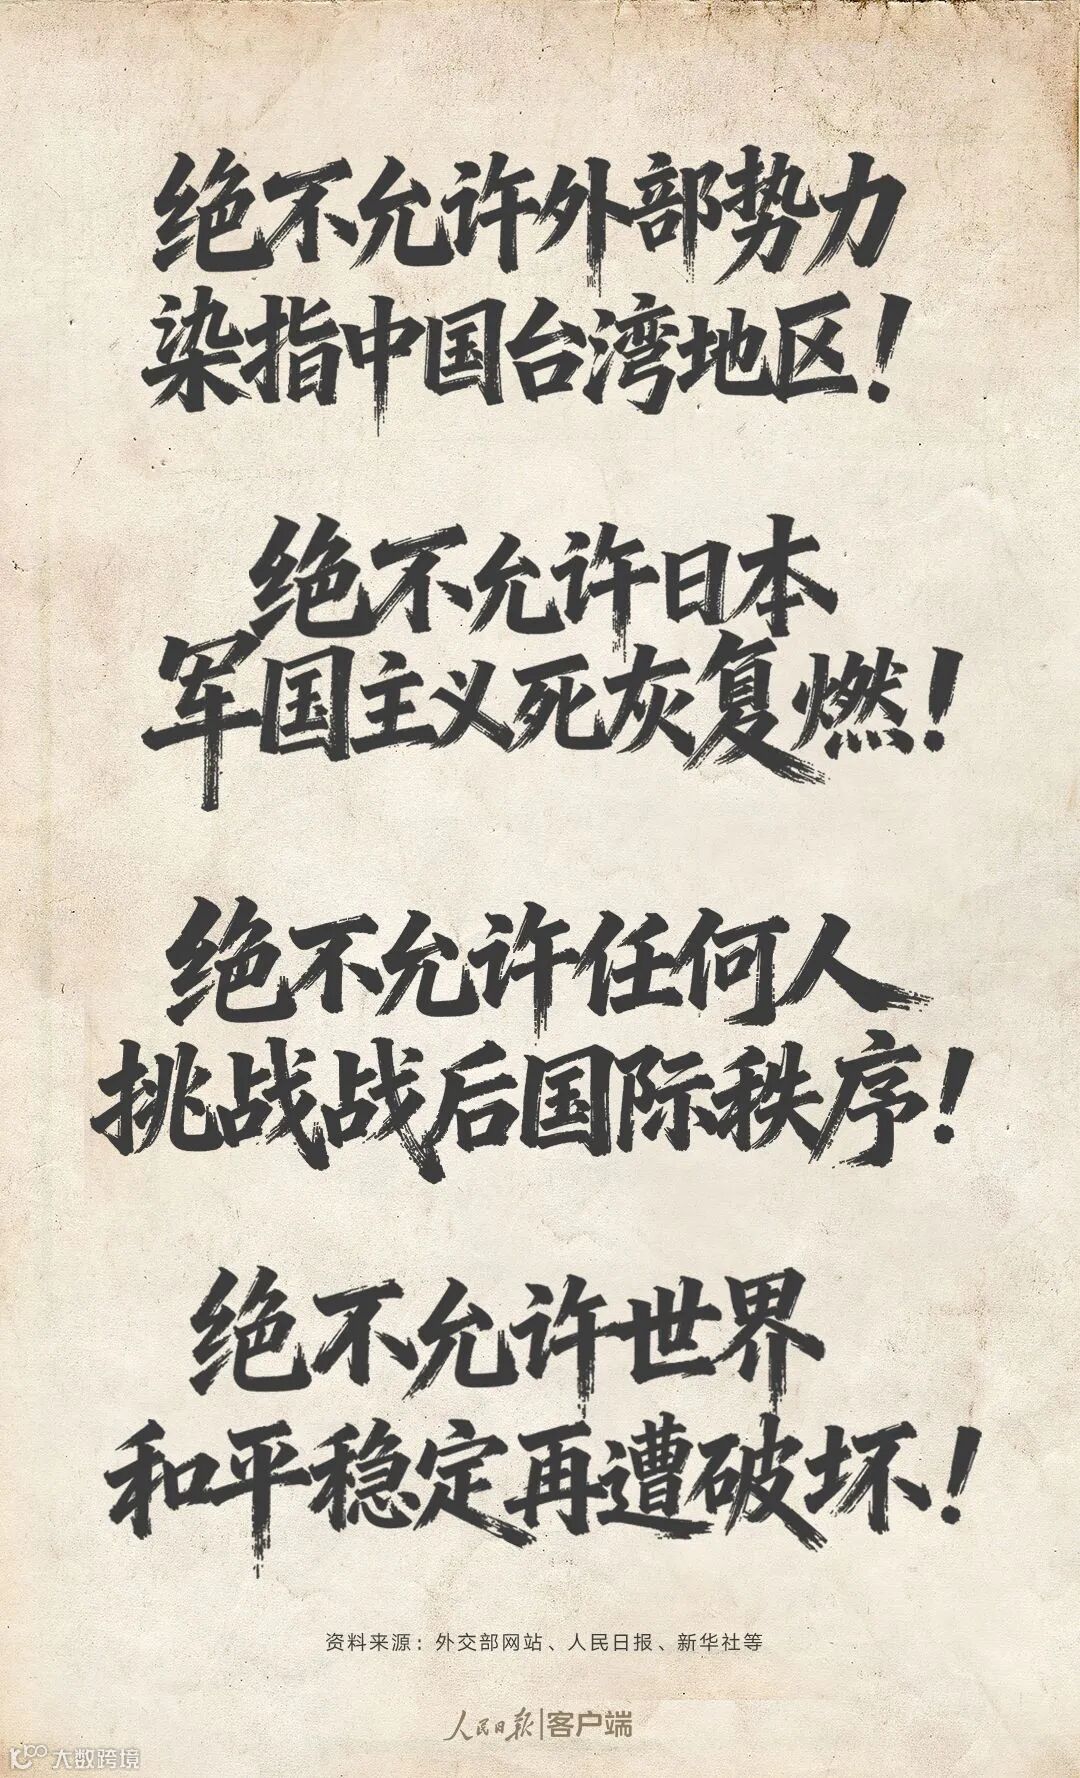 绝不允许外部势力
染指中国台湾地区！
绝不允许日本
军国主义死灰复燃！
绝不允许任何人
挑战战后国际秩序！
绝不允许世界
和平稳定再遭破坏！
资料来源：外交部网站、人民日报、新华社等
人民日报|客户端
大数跨境